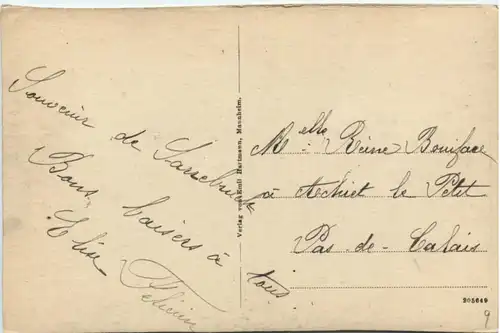 Souvenir de Sarrebruck
Bons baisers à
tous
Félicien
Verlag von Emil Hartmann, Mannheim.
Melle Reine Boniface
à Achiet le Petit
Pas-de-Calais
205649
9